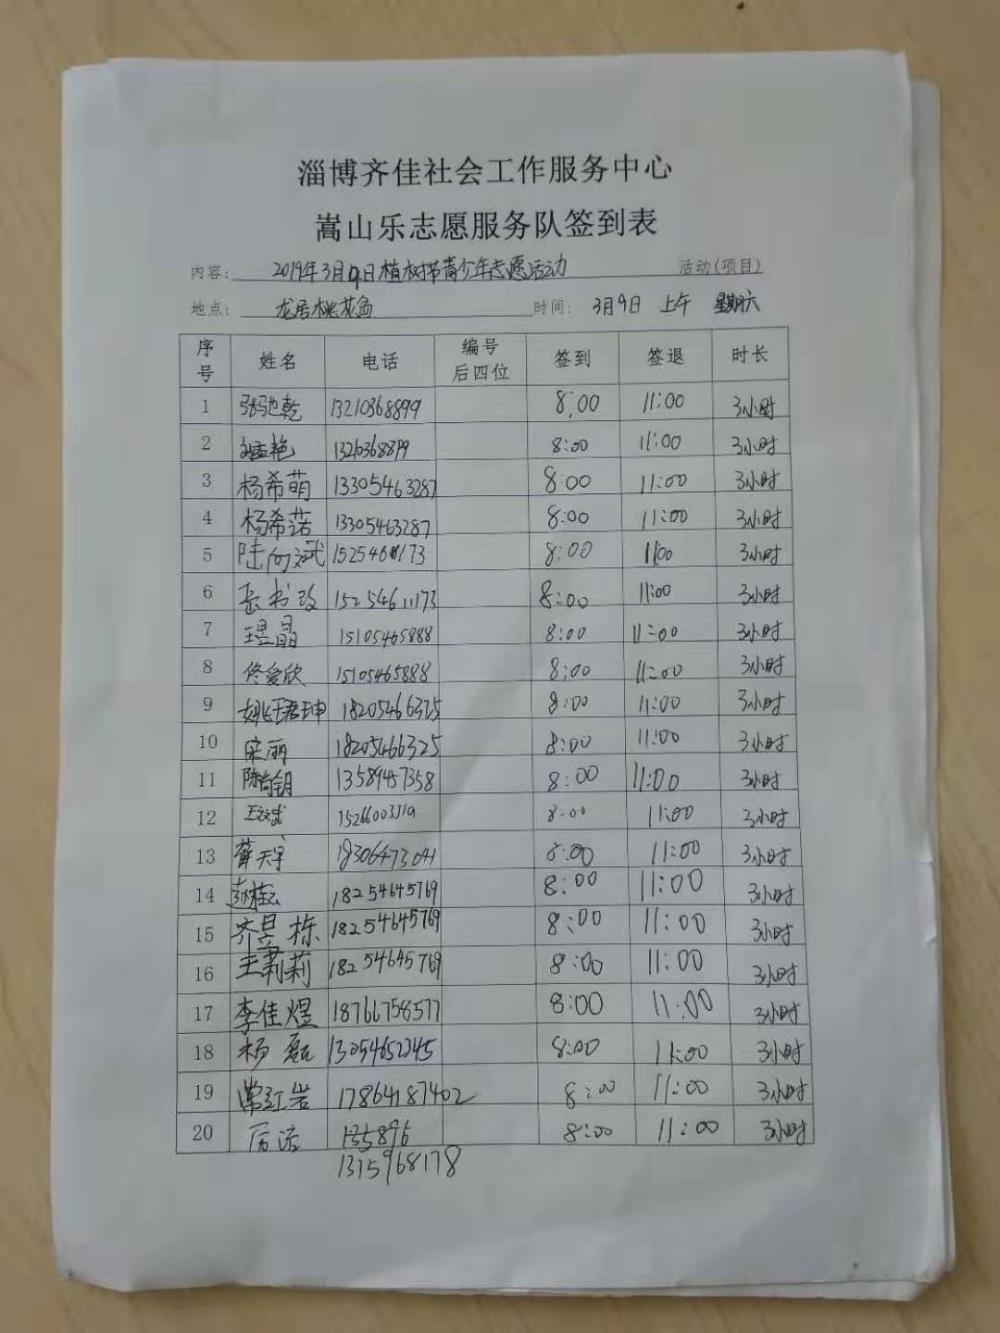 淄博齐佳社会工作服务中心
嵩山乐志愿服务队签到表
内容: 2019年3月9日植树节青少年志愿活动 活动(项目)
地点: 龙居桃花岛 时间: 3月9日 上午 星期六
序号 姓名 电话 编号后四位 签到 签退 时长
1 张驰乾 13210368899 8:00 11:00 3小时
2 8:00 11:00 3小时
3 杨希萌 13305463287 8:00 11:00 3小时
4 杨希诺 13305463287 8:00 11:00 3小时
5 陆向斌 8:00 11:00 3小时
6 15254611173 8:00 11:00 3小时
7 15105465888 8:00 11:00 3小时
8 佟爱欣 15105465888 8:00 11:00 3小时
9 18205466325 8:00 11:00 3小时
10 宋丽 18205466325 8:00 11:00 3小时
11 13589457358 8:00 11:00 3小时
12 8:00 11:00 3小时
13 18306473041 8:00 11:00 3小时
14 18254645769 8:00 11:00 3小时
15 齐昊栋 18254645769 8:00 11:00 3小时
16 王莉莉 18254645769 8:00 11:00 3小时
17 李佳煜 18766758577 8:00 11:00 3小时
18 杨磊 13054652345 8:00 11:00 3小时
19 常红岩 17864187402 8:00 11:00 3小时
20 135896 8:00 11:00 3小时